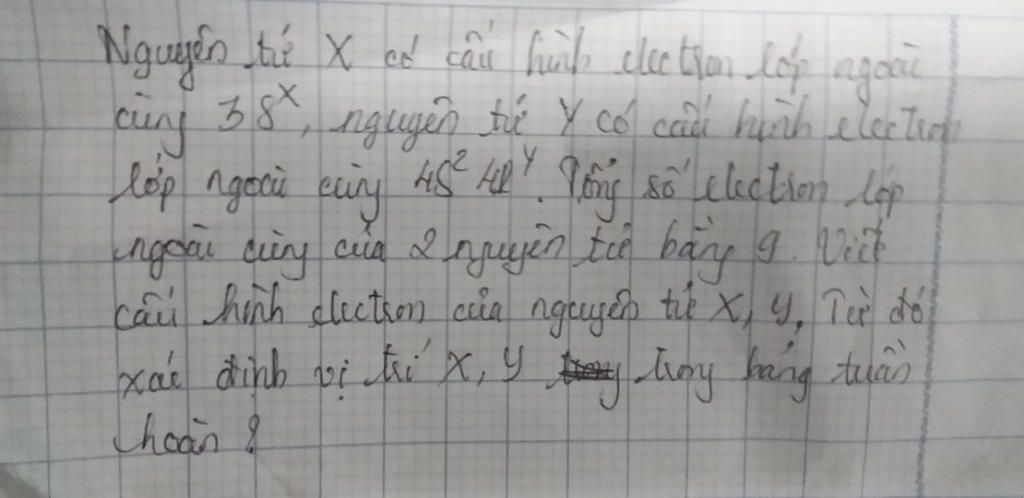 Nguyên tử X có cấu hình election lớp ngoài
cùng 3s^x, nguyên tử Y có cấu hình election
lớp ngoài cùng 4s² 4p^y. Tổng số election lớp
ngoài cùng của 2 nguyên tử bằng 9. Viết
cấu hình election của nguyên tử X, y, Từ đó
xác định vị trí X, y trong bảng tuần
hoàn ?